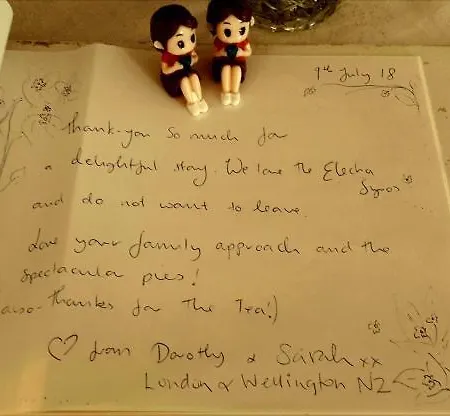 9th July 18
Thank-you so much for
a delightful stay. We love the Electra
Syros
and do not want to leave.
Love your family approach and the
spectacular pies!
also - thanks for the Tea!)
♡ from Dorothy & Sarah xx
London & Wellington NZ